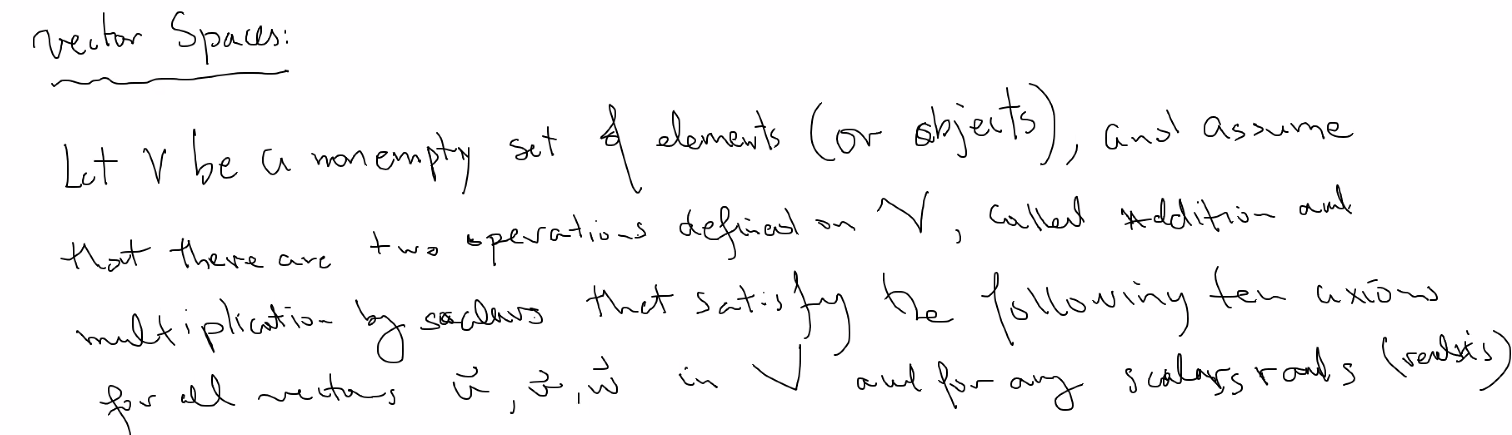 Vector Spaces:
Let V be a nonempty set of elements (or objects), and assume
that there are two operations defined on V, called Addition and
multiplication by scalars that satisfy the following ten axioms
for all vectors u⃗, v⃗, w⃗ in V and for any scalars r and s (reals)